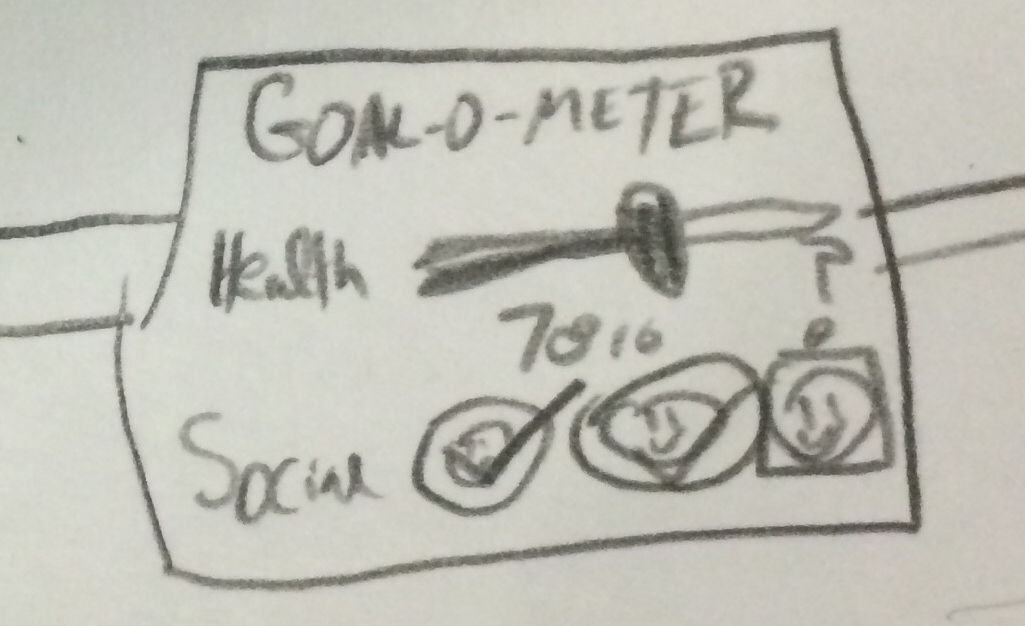 GOAL-O-METER
Health
?
Social